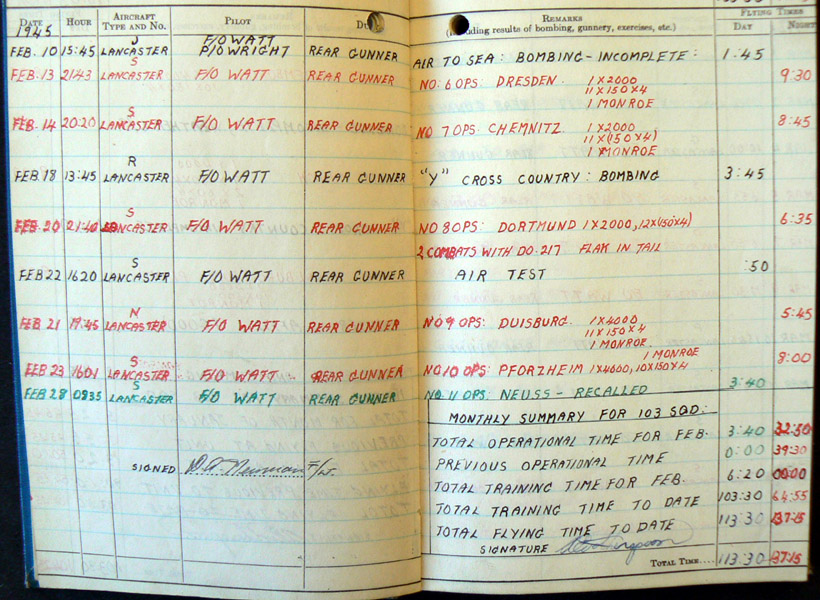 1945
DATE HOUR AIRCRAFT TYPE AND NO. PILOT REMARKS (Including results of bombing, gunnery, exercises, etc.) FLYING TIMES DAY NIGHT
FEB. 10 15:45 J LANCASTER F/O WATT P/O WRIGHT REAR GUNNER AIR TO SEA: BOMBING - INCOMPLETE: 1:45
FEB. 13 2143 S LANCASTER F/O WATT REAR GUNNER NO: 6 OPS: DRESDEN. 1 X 2000 9:30
11 X 150 X 4
1 MONROE
FEB. 14 2020 S LANCASTER F/O WATT REAR GUNNER NO 7 OPS: CHEMNITZ. 1 X 2000 8:45
11 X (150 X 4)
1 MONROE
FEB. 18 13:45 R LANCASTER F/O WATT REAR GUNNER "Y" CROSS COUNTRY: BOMBING 3:45
FEB 20 21:40 S LANCASTER F/O WATT REAR GUNNER NO 8 OPS: DORTMUND 1 X 2000, 12 X (150 X 4) 6:35
2 COMBATS WITH DO. 217 FLAK IN TAIL
FEB 22 1620 S LANCASTER F/O WATT REAR GUNNER AIR TEST :50
FEB 21 19:45 N LANCASTER F/O WATT REAR GUNNER NO 9 OPS: DUISBURG. 1 X 4000 5:45
11 X 150 X 4
1 MONROE
1 MONROE
FEB 23 1601 S LANCASTER F/O WATT REAR GUNNER NO. 10 OPS: PFORZHEIM 1 X 4000, 10 X 150 X 4 8:00
FEB 28 0835 S LANCASTER F/O WATT REAR GUNNER NO. 11 OPS: NEUSS - RECALLED 3:40
MONTHLY SUMMARY FOR 103 SQD:
TOTAL OPERATIONAL TIME FOR FEB. 3:40
PREVIOUS OPERATIONAL TIME 0:00 39:30
TOTAL TRAINING TIME FOR FEB. 6:20 00:00
TOTAL TRAINING TIME TO DATE 103:30 64:55
TOTAL FLYING TIME TO DATE 113:30 137:15
SIGNED
SIGNATURE
TOTAL TIME.... 113:30 137:15